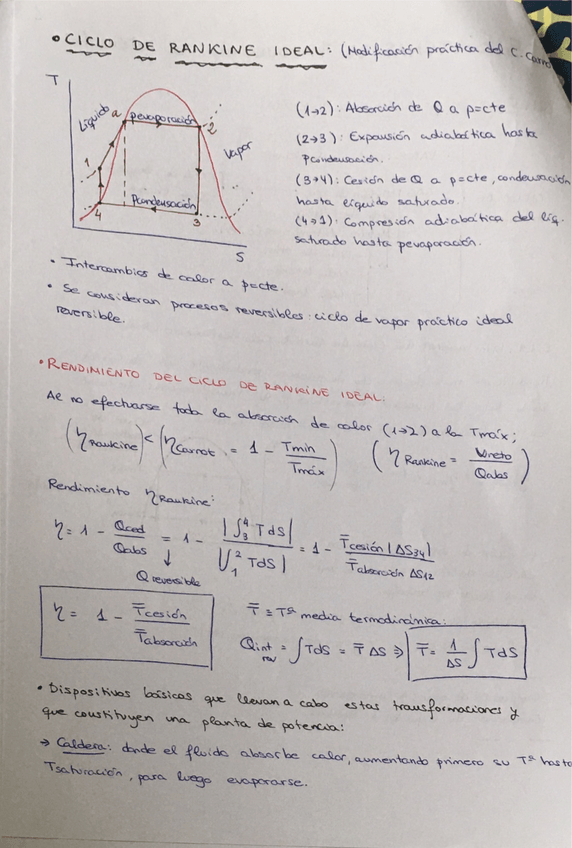 • CICLO DE RANKINE IDEAL: (Modificación práctica del C. Carno
T
Líquido
a
pevaporación
2
Vapor
1
pcondensación
4
3
S
(1→2): Absorción de Q a p=cte
(2→3): Expansión adiabática hasta
pcondensación.
(3→4): Cesión de Q a p=cte, condensación
hasta líquido saturado.
(4→1): Compresión adiabática del líq.
saturado hasta pevaporación.
• Intercambios de calor a p=cte.
• Se consideran procesos reversibles: ciclo de vapor práctico ideal
reversible.
• RENDIMIENTO DEL CICLO DE RANKINE IDEAL:
Al no efectuarse toda la absorción de calor (1→2) a la Tmáx;
(η Rankine) < (η Carnot = 1 - Tmin / Tmáx) (η Rankine = Wneto / Qabs)
Rendimiento η Rankine:
η = 1 - Qced / Qabs = 1 - |∫₃⁴ TdS| / |∫₁² TdS| = 1 - T̄cesión |ΔS34| / T̄absorción ΔS12
↓
Q reversible
η = 1 - T̄cesión / T̄absorción
T̄ ≡ Tª media termodinámica:
Qint rev = ∫TdS = T̄ ΔS ⇒ T̄ = 1/ΔS ∫ TdS
• Dispositivos básicos que llevan a cabo estas transformaciones y
que constituyen una planta de potencia:
→ Caldera: donde el fluido absorbe calor, aumentando primero su Tª hasta
Tsaturación, para luego evaporarse.